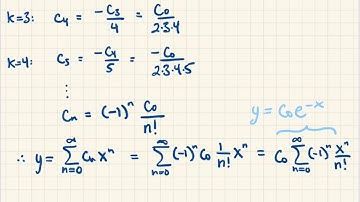 k=3: c₄ = -c₃/4 = c₀/2·3·4
k=4: c₅ = -c₄/5 = -c₀/2·3·4·5
⋮
cₙ = (-1)ⁿ c₀/n!
y = c₀e^-x
∴ y = ∑_{n=0}^{∞} cₙxⁿ = ∑_{n=0}^{∞} (-1)ⁿ c₀ 1/n! xⁿ = c₀ ∑_{n=0}^{∞} (-1)ⁿ xⁿ/n!